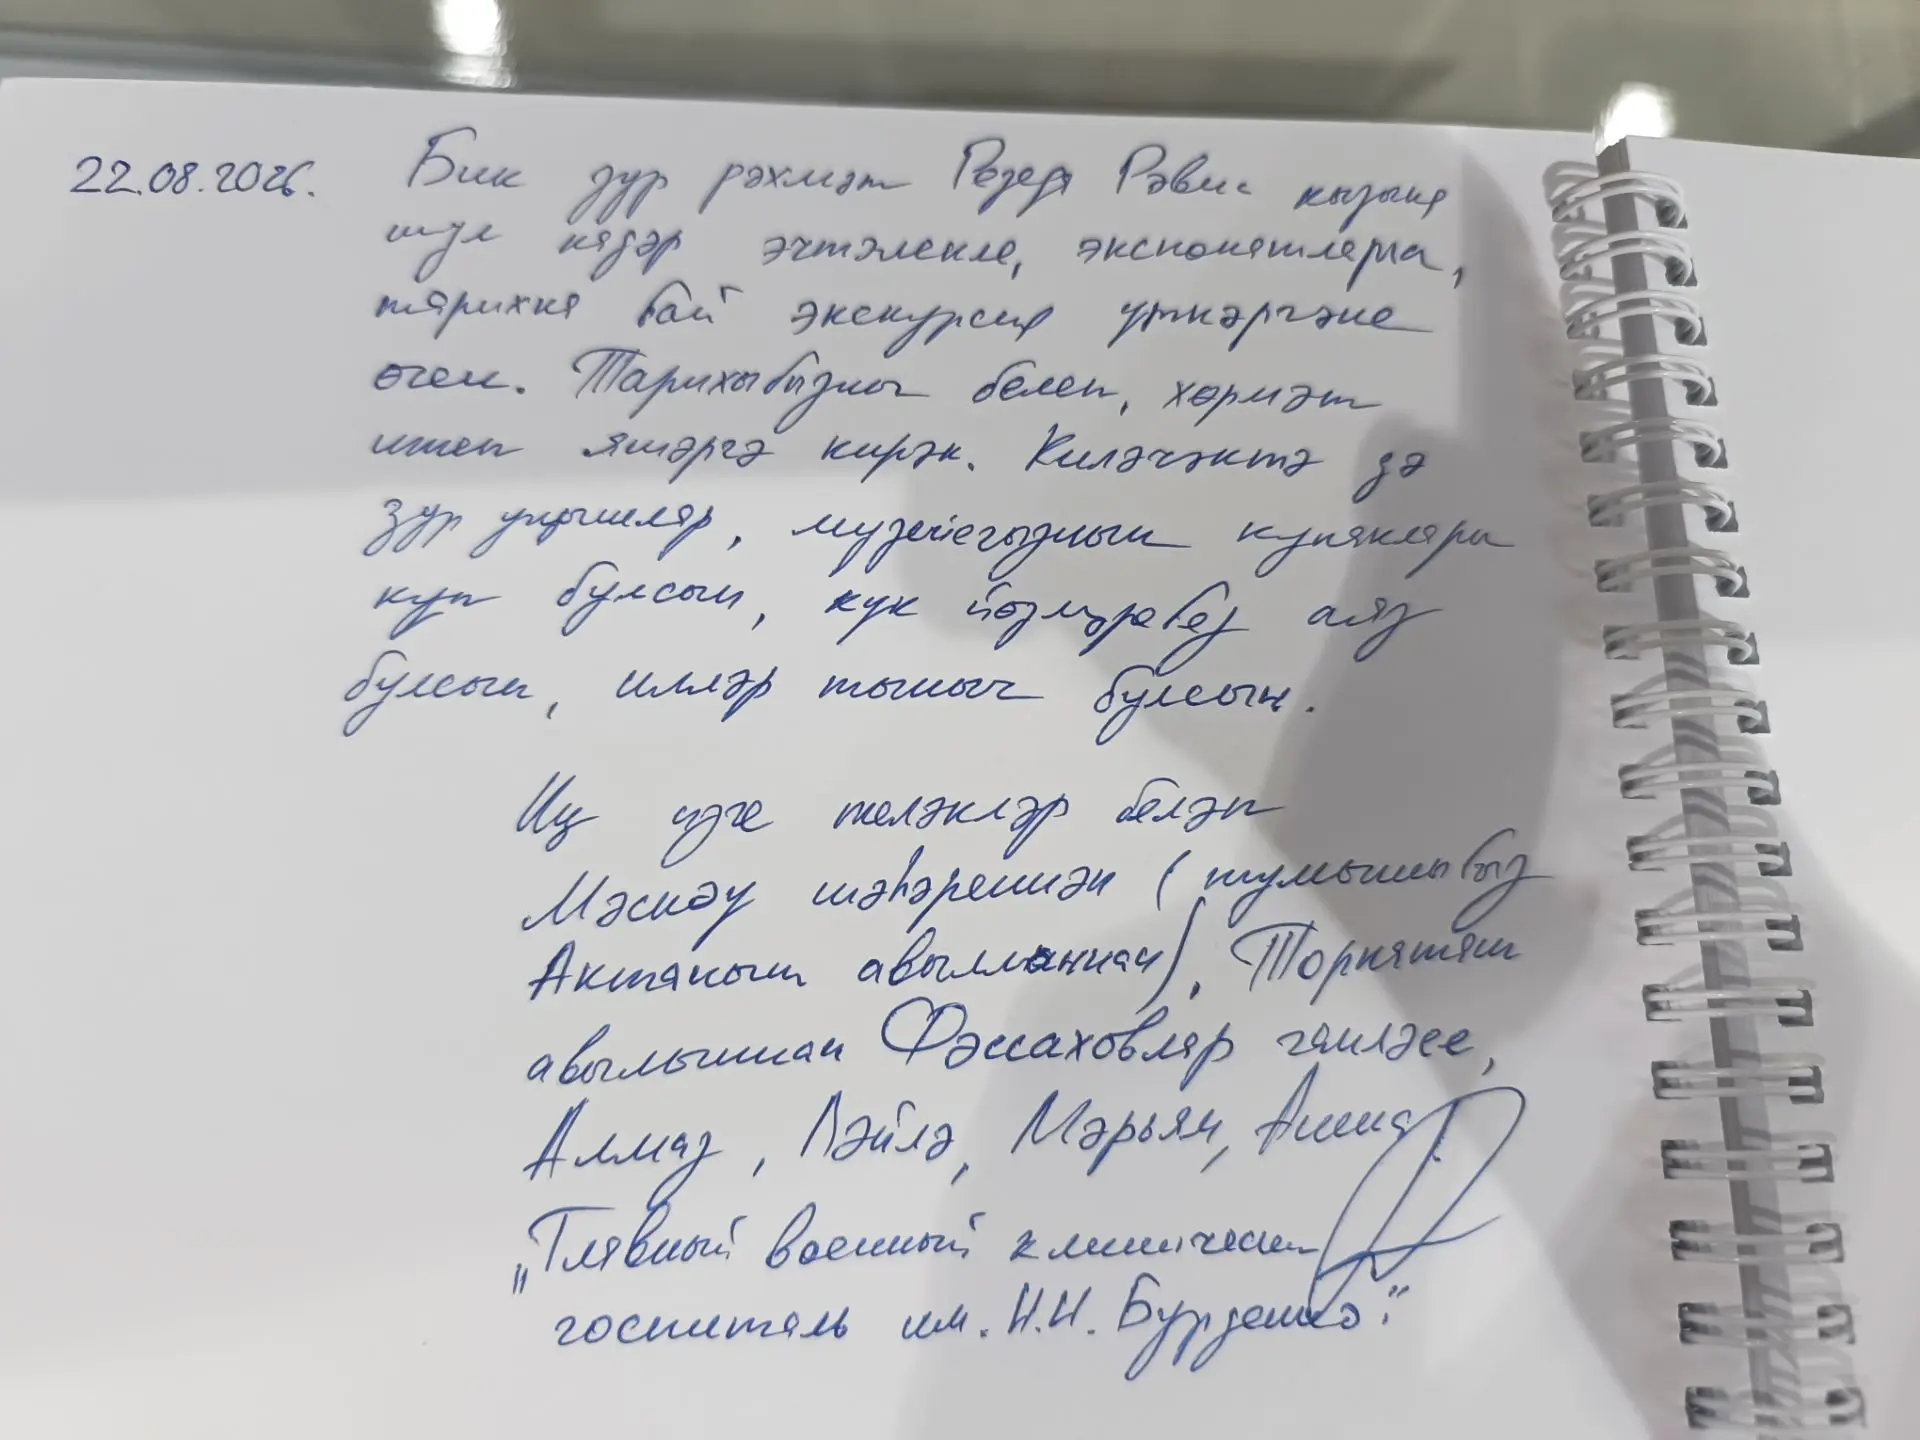 22.08.2026. Бик зур рәхмәт Резеда Рәвис кызына
шул кадәр эчтәлекле, экспонатларга,
тарихка бай экскурсия үткәргәне
өчен. Тарихыбызны белеп, хөрмәт
итеп яшәргә кирәк. Киләчәктә дә
зур уңышлар, музеегызның кунаклары
күп булсын, күк йөзләребез аяз
булсын, илләр тыныч булсын.
Иң изге теләкләр белән
Мәскәү шәһәреннән (тумышыбыз
Актаныш авылыннан), Торнаташ
авылыннан Фәссаховлар гаиләсе,
Алмаз, Ләйлә, Мәрьям, Анна.
„Главный военный клинический
госпиталь им. Н.Н. Бурденко".